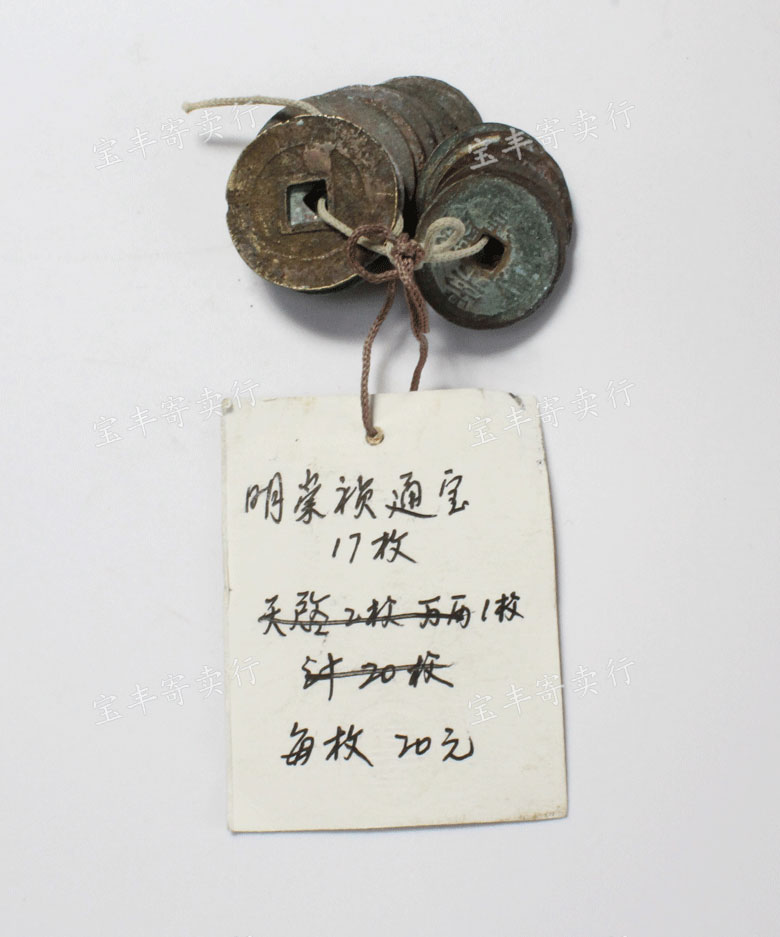 宝丰寄卖行 宝丰寄卖行
宝丰寄卖行 宝丰寄卖行
明崇祯通宝
17枚
天启2枚 万历1枚
计20枚
宝丰寄卖行 宝丰寄卖行
每枚20元